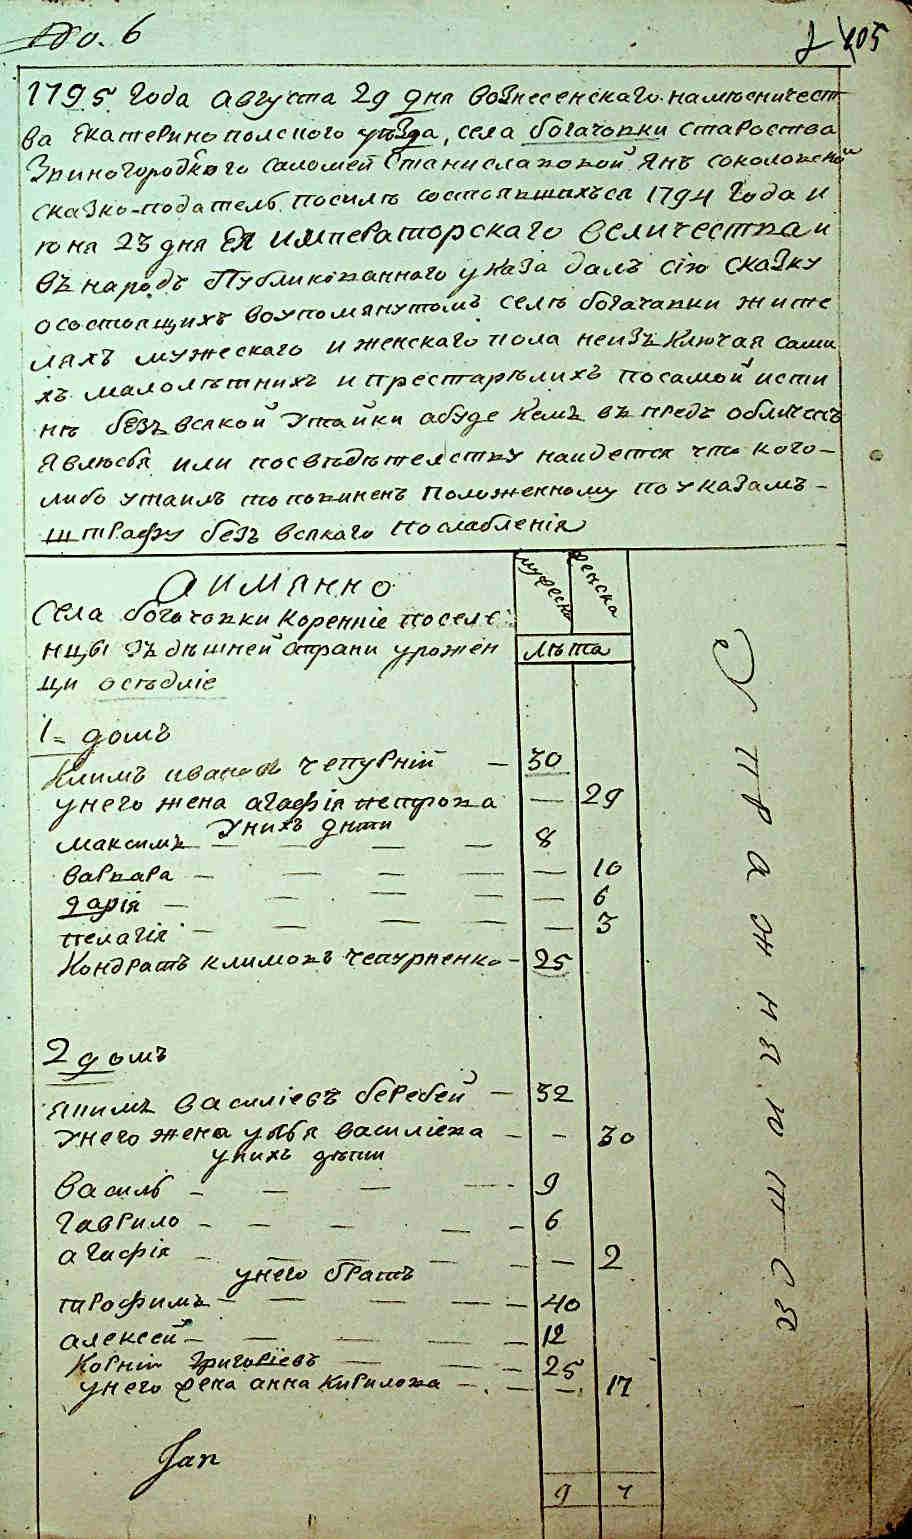 № 6
105
1795 Года Августа 29 дня вознесенскаго наместничест
ва Екатеринополского уѣзда, села богачовки староства
Звиногородского саломеи Станиславовой Янъ соколовский
сказко-податель посилѣ состоявшихъся 1794 Года и
юня 23 дня Ея императорскаго величества и
въ народъ Публикованнаго указа далъ сію сказку
о состоящихъ воупомянутомъ селѣ богачовки жите
ляхъ мужескаго и женскаго пола неизъключая сами
хъ малолѣтнихъ и престарѣлихъ посамой исти
нѣ безъ всякой Утайки абуде кемъ въ предъ обличенъ
явлюсѣ или посвѣдѣтелству наидется что кого-
либо утаилъ то повиненъ положенному по указамъ-
штрафу безъ всякаго послабленія
а имянно
мужеска
женска
Села богачовки коренніе поселе
нцы здѣшней страни урожен
ци осѣдліе
лѣта
1= домъ
Климъ ивановъ чепурній — 30
унего жена агафія петрова — 29
Унихъ дѣти
максимъ — — — — 8
варвара — — — — — 10
дарія — — — — — 6
пелагія — — — — — 3
Кондратъ климовъ чепурненко - 25
2 домъ
якимъ василіевъ беребей — 32
Унего жена улья василіева - - 30
унихъ дѣти
василь — — — — 9
гаврило - - - — - 6
агафія - — — — - — 2
унего братъ
трофимъ — — — — - 40
алексей — — — — - 12
Корній григоріевъ — — - 25
унего жена анна кирилова - - — - 17
Jan
9 7
Управжненцтво